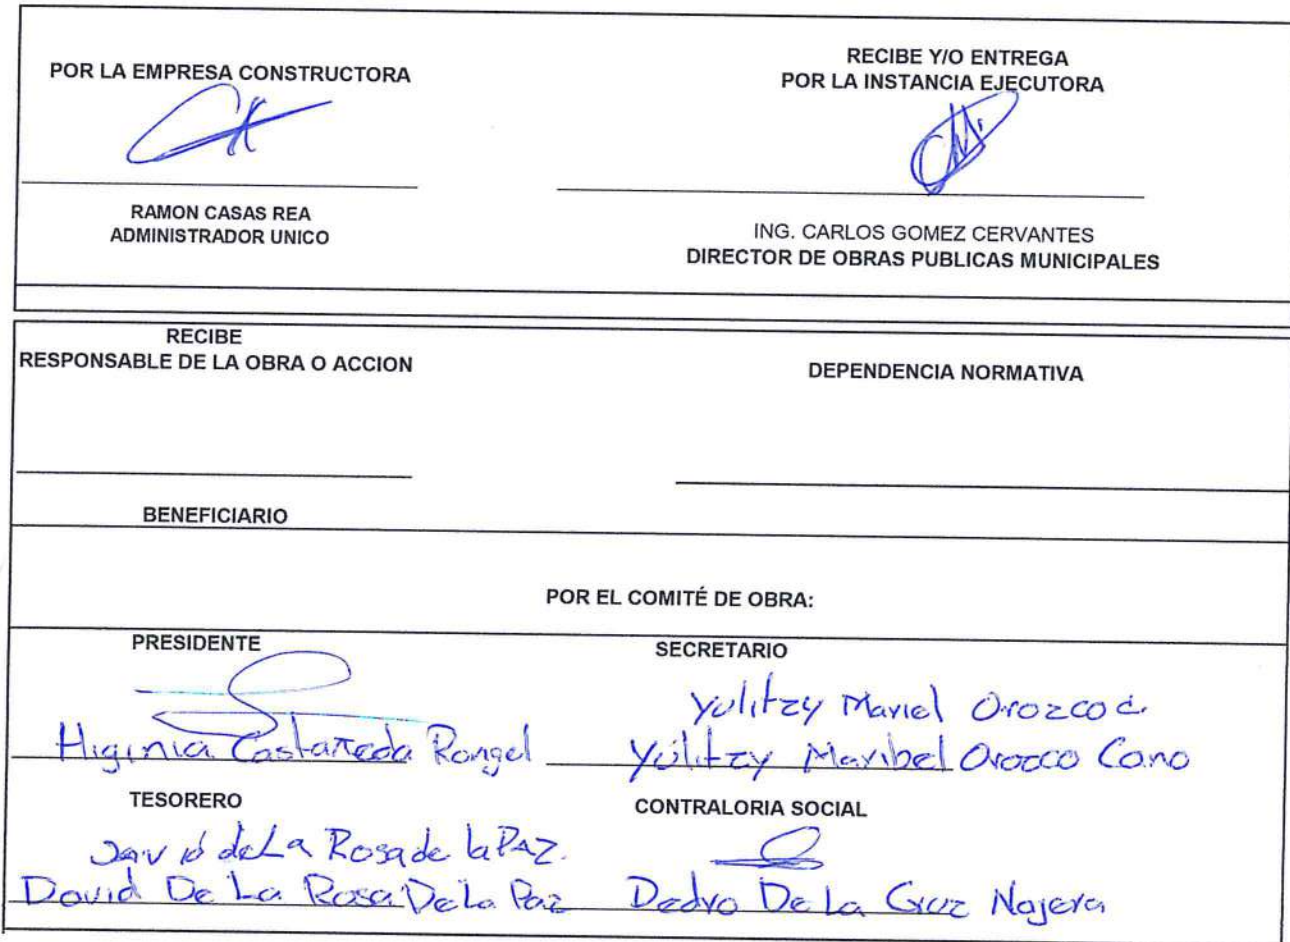 POR LA EMPRESA CONSTRUCTORA
RAMON CASAS REA
ADMINISTRADOR UNICO
RECIBE Y/O ENTREGA
POR LA INSTANCIA EJECUTORA
ING. CARLOS GOMEZ CERVANTES
DIRECTOR DE OBRAS PUBLICAS MUNICIPALES
RECIBE
RESPONSABLE DE LA OBRA O ACCION
DEPENDENCIA NORMATIVA
BENEFICIARIO
POR EL COMITÉ DE OBRA:
PRESIDENTE
Higinia Castañeda Rangel
SECRETARIO
Yulitzy Mariel Orozco c.
Yulitzy Maribel Orozco Cano
TESORERO
David de La Rosa de la PAZ.
David De La Rosa De La Paz
CONTRALORIA SOCIAL
Pedro De La Cruz Najera